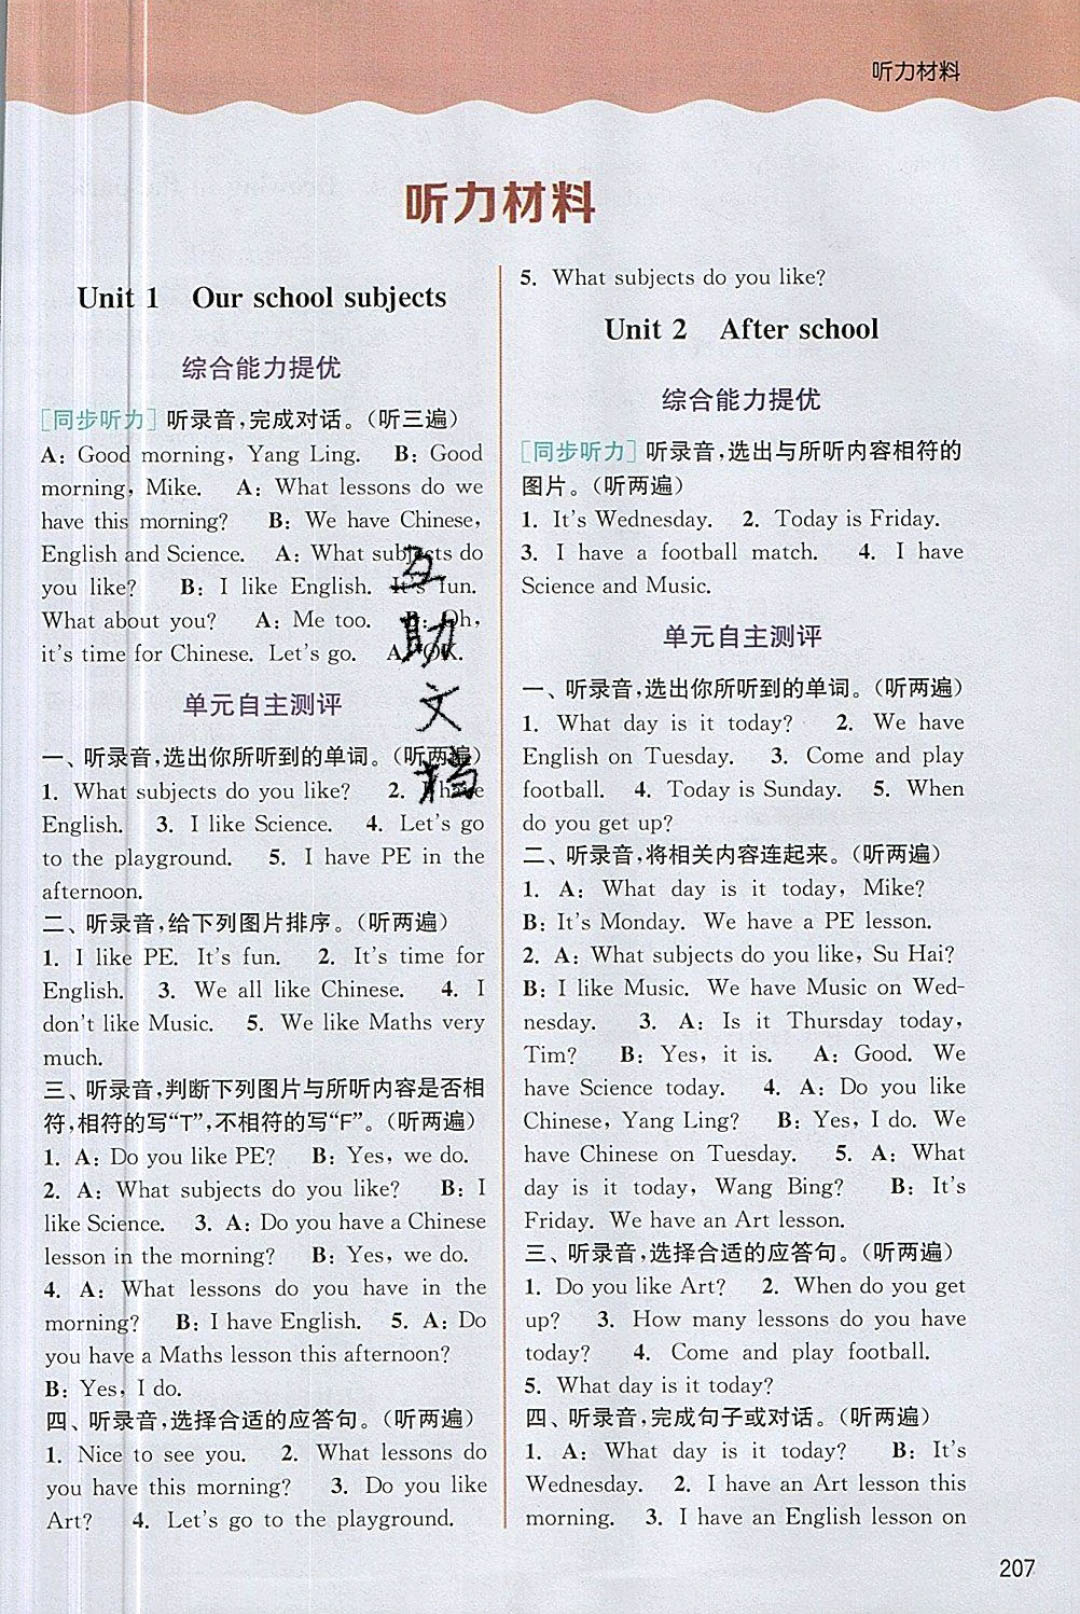 听力材料
听力材料
Unit 1 Our school subjects
综合能力提优
[同步听力] 听录音,完成对话。(听三遍)
A: Good morning, Yang Ling. B: Good
morning, Mike. A: What lessons do we
have this morning? B: We have Chinese,
English and Science. A: What subjects do
you like? B: I like English. It's fun.
What about you? A: Me too. B: Oh,
it's time for Chinese. Let's go. A: OK.
单元自主测评
一、听录音,选出你所听到的单词。(听两遍)
1. What subjects do you like? 2. I have
English. 3. I like Science. 4. Let's go
to the playground. 5. I have PE in the
afternoon.
二、听录音,给下列图片排序。(听两遍)
1. I like PE. It's fun. 2. It's time for
English. 3. We all like Chinese. 4. I
don't like Music. 5. We like Maths very
much.
三、听录音,判断下列图片与所听内容是否相
符,相符的写“T”,不相符的写“F”。(听两遍)
1. A: Do you like PE? B: Yes, we do.
2. A: What subjects do you like? B: I
like Science. 3. A: Do you have a Chinese
lesson in the morning? B: Yes, we do.
4. A: What lessons do you have in the
morning? B: I have English. 5. A: Do
you have a Maths lesson this afternoon?
B: Yes, I do.
四、听录音,选择合适的应答句。(听两遍)
1. Nice to see you. 2. What lessons do
you have this morning? 3. Do you like
Art? 4. Let's go to the playground.
5. What subjects do you like?
Unit 2 After school
综合能力提优
[同步听力] 听录音,选出与所听内容相符的
图片。(听两遍)
1. It's Wednesday. 2. Today is Friday.
3. I have a football match. 4. I have
Science and Music.
单元自主测评
一、听录音,选出你所听到的单词。(听两遍)
1. What day is it today? 2. We have
English on Tuesday. 3. Come and play
football. 4. Today is Sunday. 5. When
do you get up?
二、听录音,将相关内容连起来。(听两遍)
1. A: What day is it today, Mike?
B: It's Monday. We have a PE lesson.
2. A: What subjects do you like, Su Hai?
B: I like Music. We have Music on Wed-
nesday. 3. A: Is it Thursday today,
Tim? B: Yes, it is. A: Good. We
have Science today. 4. A: Do you like
Chinese, Yang Ling? B: Yes, I do. We
have Chinese on Tuesday. 5. A: What
day is it today, Wang Bing? B: It's
Friday. We have an Art lesson.
三、听录音,选择合适的应答句。(听两遍)
1. Do you like Art? 2. When do you get
up? 3. How many lessons do you have
today? 4. Come and play football.
5. What day is it today?
四、听录音,完成句子或对话。(听两遍)
1. A: What day is it today? B: It's
Wednesday. 2. I have an Art lesson this
morning. 3. I have an English lesson on
互助文档
207